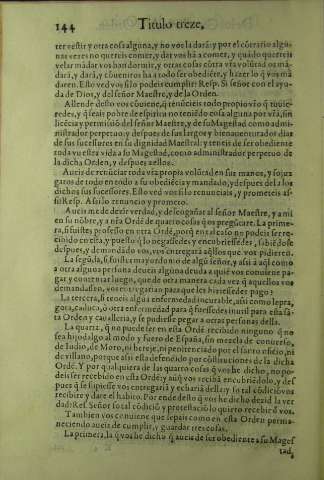 144 Titulo treze,
ter vestir y otra cosa alguna, y no vos la dará: y por el cótrario algu-
nas vezes no querreis comer, y dar vos ha a comer, y quãdo querreis
velar mãdar vos han dormir, y otras cosas cõtra vra volũtad os mã-
dará, y dará, y cõverniros ha a todo ser obediẽte, y hazer lo q̃ vos mã
daren. Esto ved vos si lo podeis cumplir? Resp. Si señor con el ayu-
da de Dios, y del señor Maestre, y de la Orden.
Allende desto vos cõuiene, q̃ renũcieis todo propio
redes, y q̃ seais pobre de espiritu no teniẽdo cosa alguna por vra, sin
licẽcia y permisiõ del señor Maestre, y de su Magestad, como admi-
nistrador perpetuo: y despues de sus largos y bienauenturados dias
de sus sucessores en su dignidad Maestral: y teneis de ser obediente
toda vuestra vida a su Magestad, como administrador perpetuo de
la dicha Orden, y despues a ellos.
Aueis de renũciar toda vra propia volũtad en sus manos, y sojuz
garos de todo en todo a su obediẽcia y mandado, y despues de la
dichos sus sucessores. Esto ved vos si lo renunciais, y prometeis as-
si? Resp. A si lo renuncio y prometo.
Aueis me de dezir verdad, y de seognar al señor Maestre, y a mi
en su nõbre, y a nra Ordẽ de quatro cosas q̃ os pregũtare. La prime-
ra, si fuistes professo en otra Ordẽ, porq̃ en tal caso no podeis ser re-
cibido en esta, y puesto q̃ lo negassedes y encubriessedes, sabiẽdose
despues, y demandado vos, vos entregariã aq̃llos que vos pidieren.
La segũda, si fuistes mayordomo de algũ señor, y assi a aq̃l como
a otra alguna persona deueis alguna deuda a quiẽ vos conuiene pa-
gar y contentar luego, que de otra manera cada vez q̃ aquellos vos
demandassen, vos entregarian para que les hiziessedes pago?
La tercera, si teneis algũa enfermedad incurable, assi como lepra,
gota, caduca, ò otra enfermedad para q̃ fuessedes inutil para esta sã-
ta Orden y caualleria, y se pudiesse pegar a otras personas della.
La quarta, q̃ no puede ser en esta Ordẽ recibido ninguno q̃ no
sea hijodalgo al modo y fuero de España, sin mezcla de conuerso,
de Iudio, de Moro, ni hereje, ni penitenciado por el santo oficio, ni
de villano, porque assi esta defendido por cõstituciones de la dicha
Ordẽ. Y por qualquiera de las quatro cosas q̃ vos he dicho, no po-
deis ser recebido en esta Ordẽ: y aunq̃ vos recibã encubriẽdolo, y des-
pues q̃ se supiesse vos entregariã y echariã della: y so tal cõdiciõ vos
recibire y dare el habito. Por ende desto q̃ vos he dicho dezid la ver
dad? Res. Señor so tal cõdiciõ y protestaciõ lo quiero recebir vos.
Tambien vos conuiene que sepais como en esta Orden perma-
neciendo aueis de cumplir, y guardar tres cosas.
La primera, la q̃ vos he dicho q̃ aueis de ser obediente a su Mages
tad,